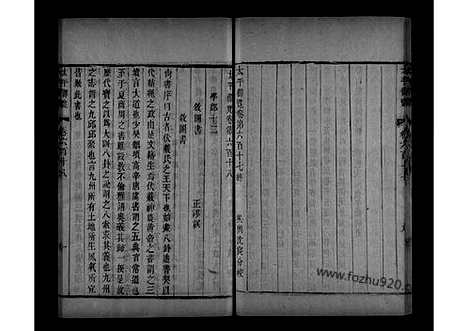 太平御覽卷第六百十七終
太平御覽卷第六百十八
學部十二
敘圖書
正謬誤
敘圖書
尚書序曰古者伏羲氏之王天下也始畫八卦造書契以
代結繩之政由是文籍生焉伏羲神農黃帝之書謂之三
墳言大道也少昊顓頊高辛唐虞之書謂之五典言常道也
至于夏商周之書雖設教不倫雅誥奧義其歸一揆是故
歷代寶之以爲大訓八卦之說謂之八索求其義也九州
之志謂之九丘丘聚也言九州所有土地所生風氣所宜
皆聚此書也
www.fozhu920.com